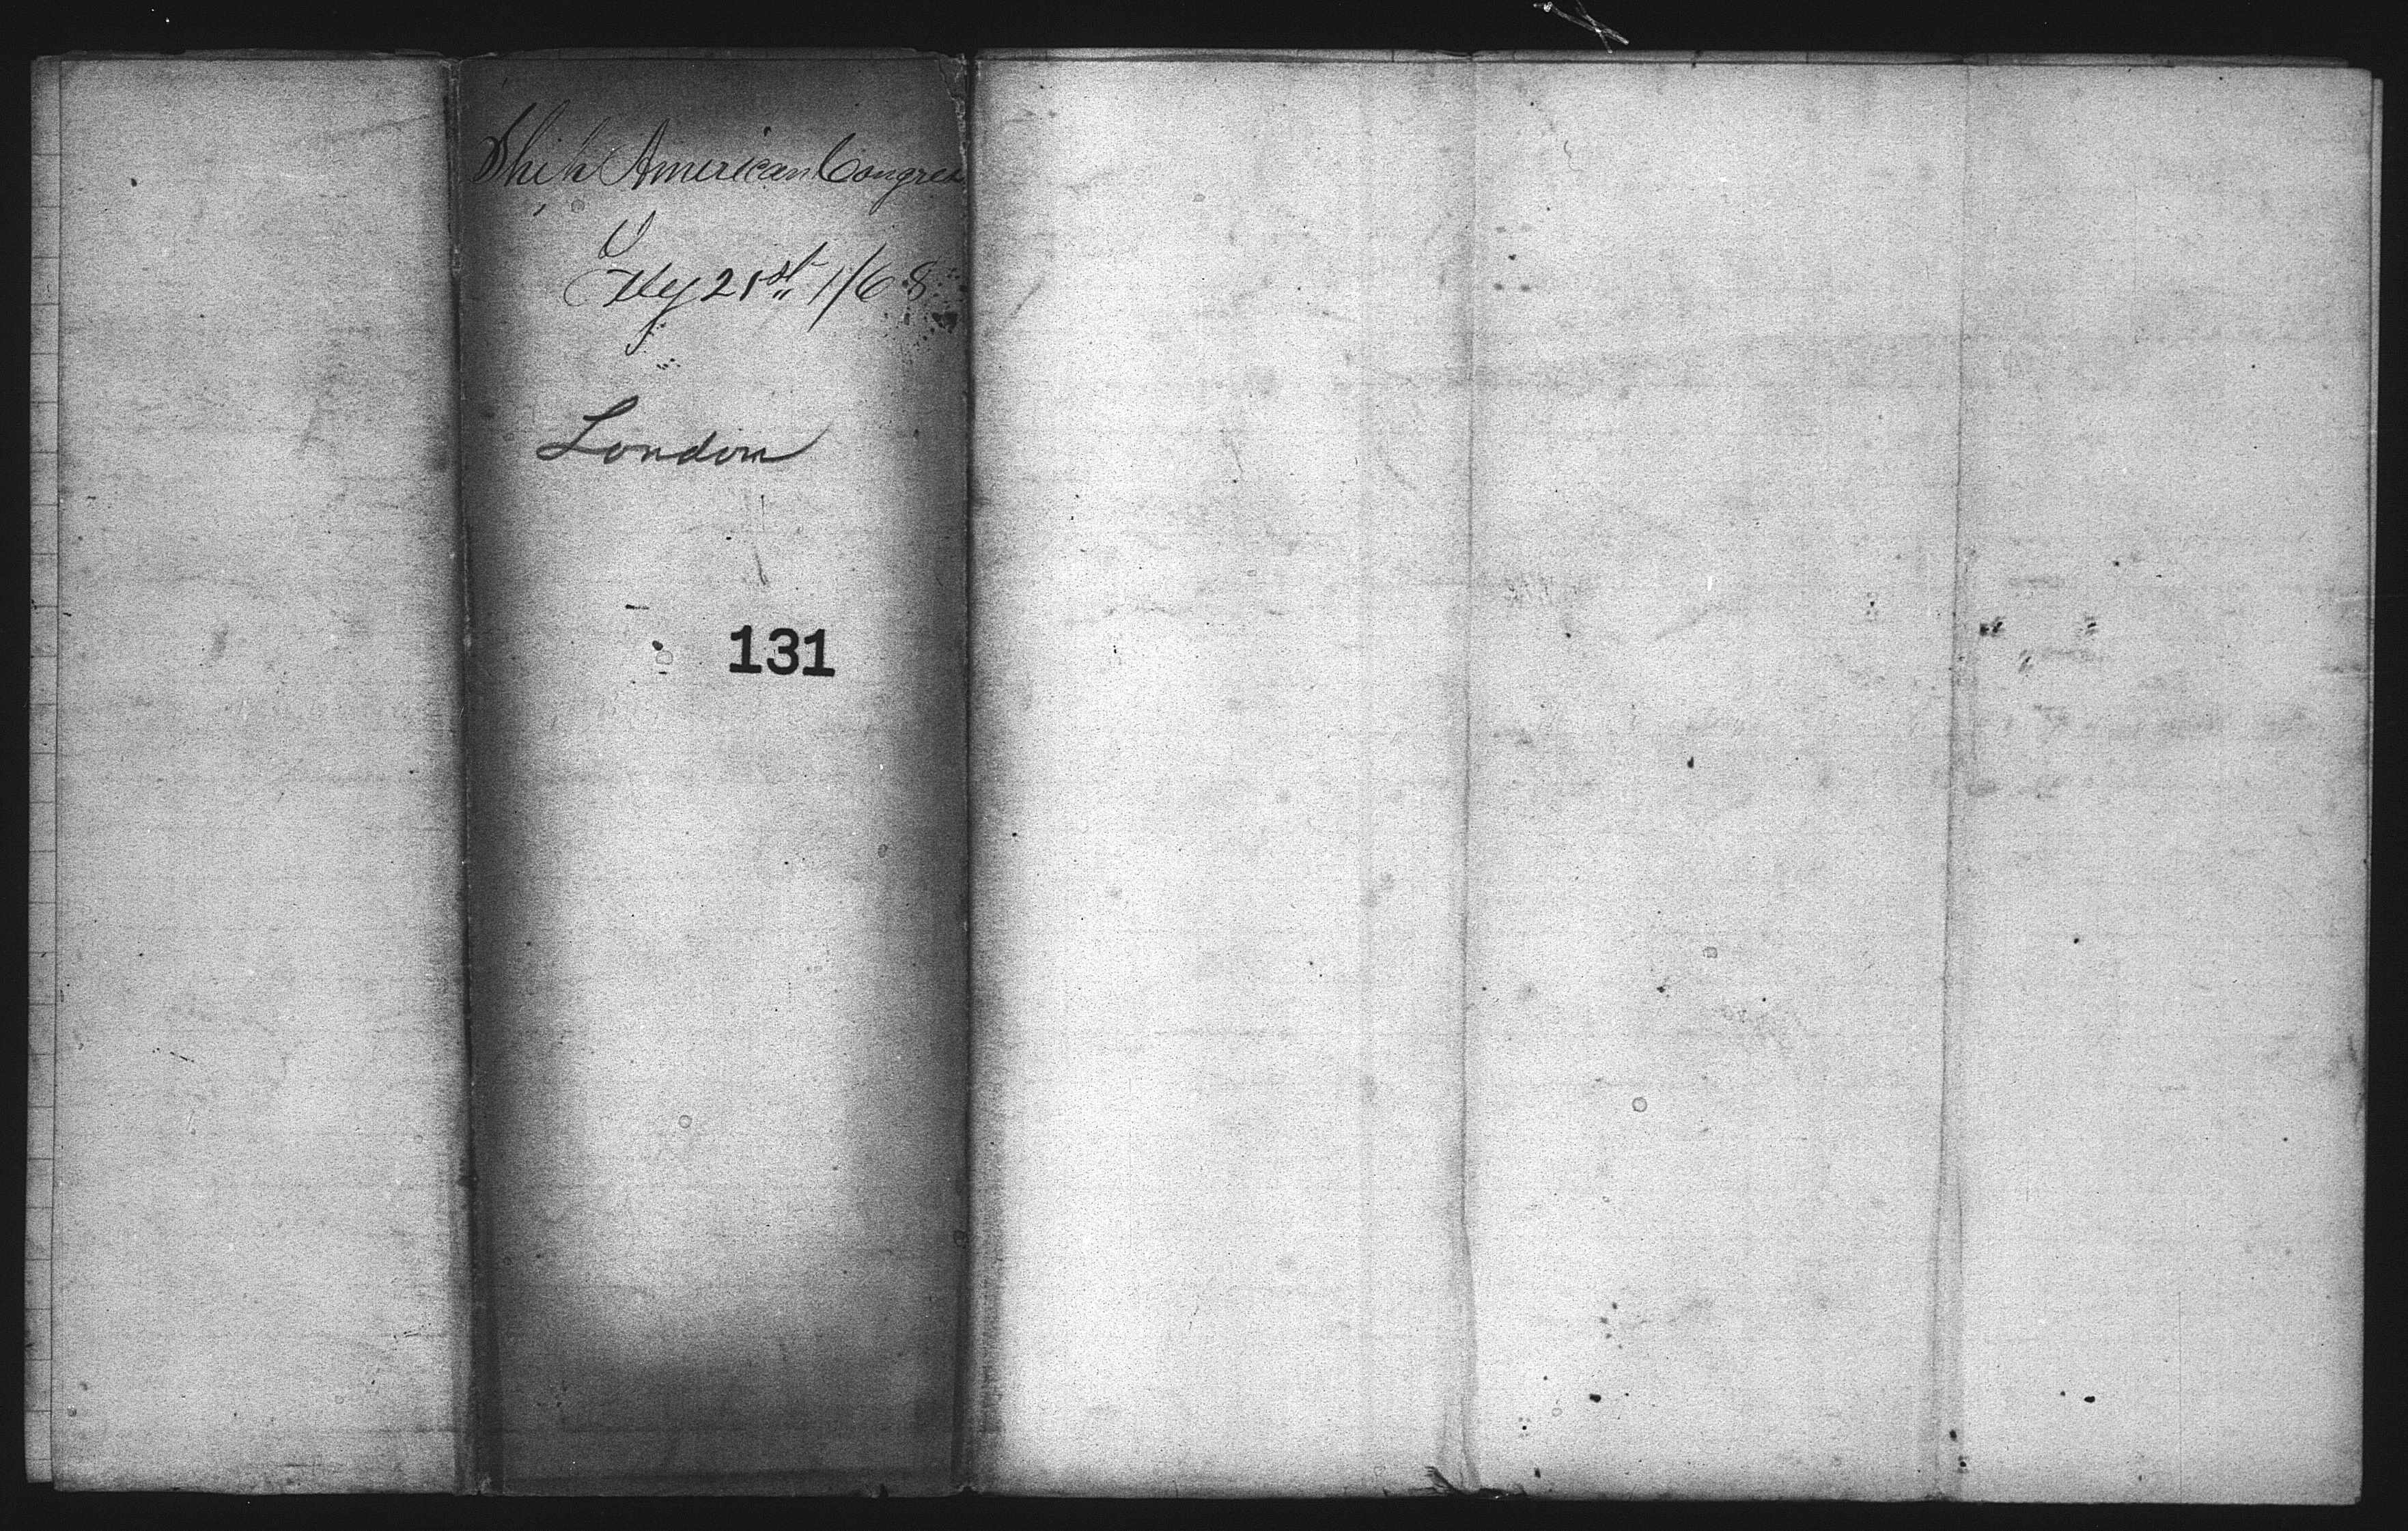 Ship American Congress
July 21st 1868
London
131